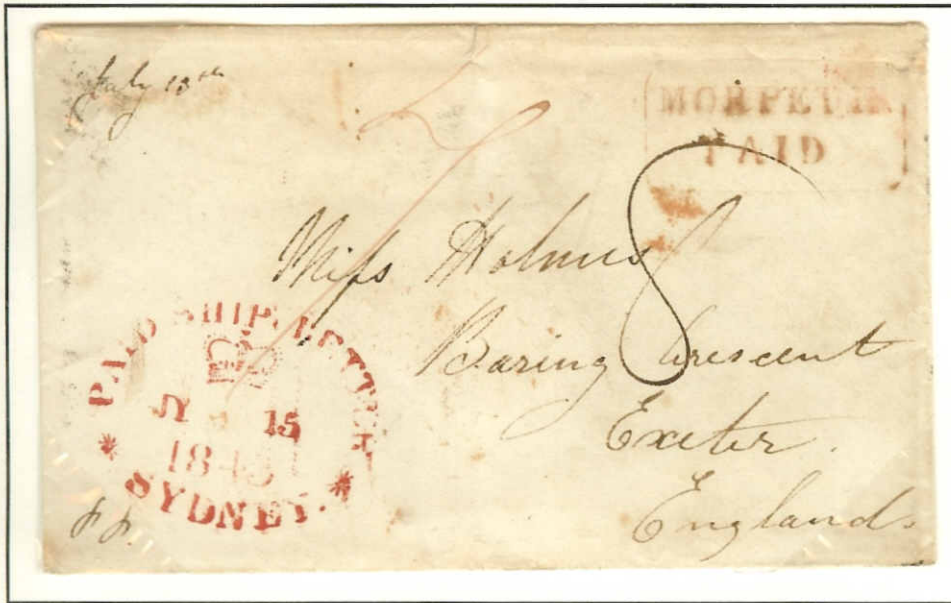 July 13th
MORPETH
PAID
8
Miss Holmes
Baring Crescent
Exeter.
England.
PAID SHIP LETTER
JY 15
SYDNEY.